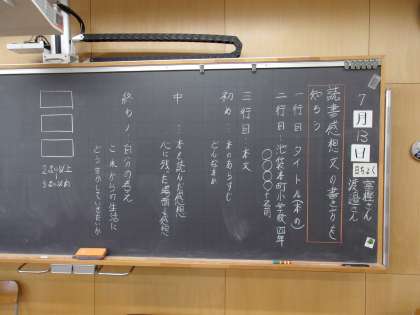 7月13日
日ちょく
渡邉さん
読書感想文の書き方を
知ろう
一行目 タイトル(本の)
二行目 池袋本町小学校四年
〇〇〇〇+名前
三行目 本文
初め…本のあらすじ
どんな本か
中…本を読んだ感想
心に残った場面と感想
終わり…自分の考え
これからの生活に
どう生かしていきたいか
2まい以上
3まい以内